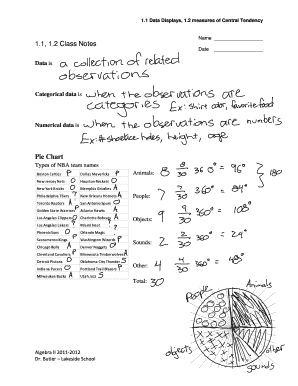 1.1 Data Displays, 1.2 measures of Central Tendency
Name
Date
1.1, 1.2 Class Notes
Data is a collection of related
observations
Categorical data is when the observations are
categories Ex: shirt color, favorite food
Numerical data is when the observations are numbers
Ex: # shoelace holes, height, age
Pie Chart
Types of NBA team names
Boston Celtics P Dallas Mavericks P
New Jersey Nets O Houston Rockets O
New York Knicks Memphis Grizzlies A
Philadelphia 76ers New Orleans Hornets A
Toronto Raptors A San Antonio Spurs O
Golden State Warriors Atlanta Hawks A
Los Angeles Clippers Charlotte Bobcats A
Los Angeles Lakers Miami Heat
Phoenix Suns O Orlando Magic
Sacramento Kings P Washington Wizards P
Chicago Bulls A Denver Nuggets O
Cleveland Cavaliers P Minnesota Timberwolves A
Detroit Pistons O Oklahoma City Thunder S
Indiana Pacers O Portland Trail Blazers P
Milwaukee Bucks A Utah Jazz S
Animals: 8 8/30 360° = 96°
People: 7 7/30 360° = 84°
180
Objects: 9 9/30 360° = 108°
Sounds: 2 2/30 360° = 24°
Other: 4 4/30 360° = 48°
Total: 30
People
Animals
objects
other
sounds
Algebra II 2011-2012
Dr. Butler – Lakeside School